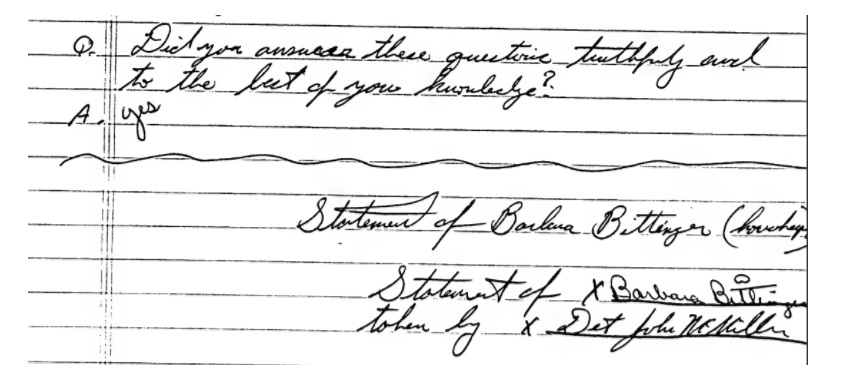 Q. Did you answer these questions truthfully and
to the best of your knowledge?
A. yes
Statement of Barbara Bittinger
Statement of X Barbara Bittinger
taken by X Det John